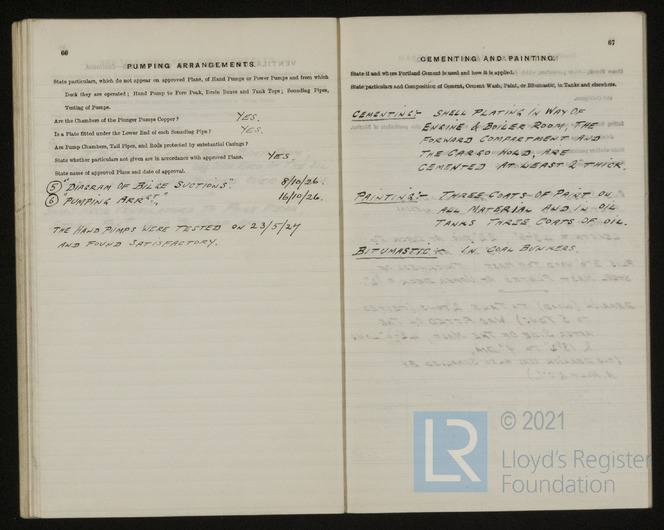 66
PUMPING ARRANGEMENTS.
State particulars, which do not appear on approved Plans, of Hand Pumps or Power Pumps and from which
Deck they are operated; Hand Pump to Fore Peak, Drain Boxes and Tank Tops; Sounding Pipes,
Testing of Pumps.
Are the Chambers of the Plunger Pumps Copper? YES.
Is a Plate fitted under the Lower End of each Sounding Pipe? YES.
Are Pump Chambers, Tail Pipes, and Rods protected by substantial Casings?
State whether particulars not given are in accordance with approved Plans. YES.
State name of approved Plans and date of approval.
5 "DIAGRAM OF BILGE SUCTIONS" 8/10/26.
6 "PUMPING ARRGT" 16/10/26.
THE HAND PUMPS WERE TESTED ON 23/5/27
AND FOUND SATISFACTORY.
67
CEMENTING AND PAINTING.
State if and where Portland Cement is used and how it is applied.
State particulars and Composition of Cement, Cement Wash, Paint, or Bitumastic, in Tanks and elsewhere.
CEMENTING:- SHELL PLATING IN WAY OF
ENGINE & BOILER ROOM, THE
FORWARD COMPARTMENT AND
THE CARGO HOLD, ARE
CEMENTED AT LEAST 2" THICK.
PAINTING:- THREE COATS OF PAINT ON
ALL MATERIAL AND IN OIL
TANKS THREE COATS OF OIL.
BITUMASTIC:- IN COAL BUNKERS.
LR
© 2021
Lloyd's Register
Foundation